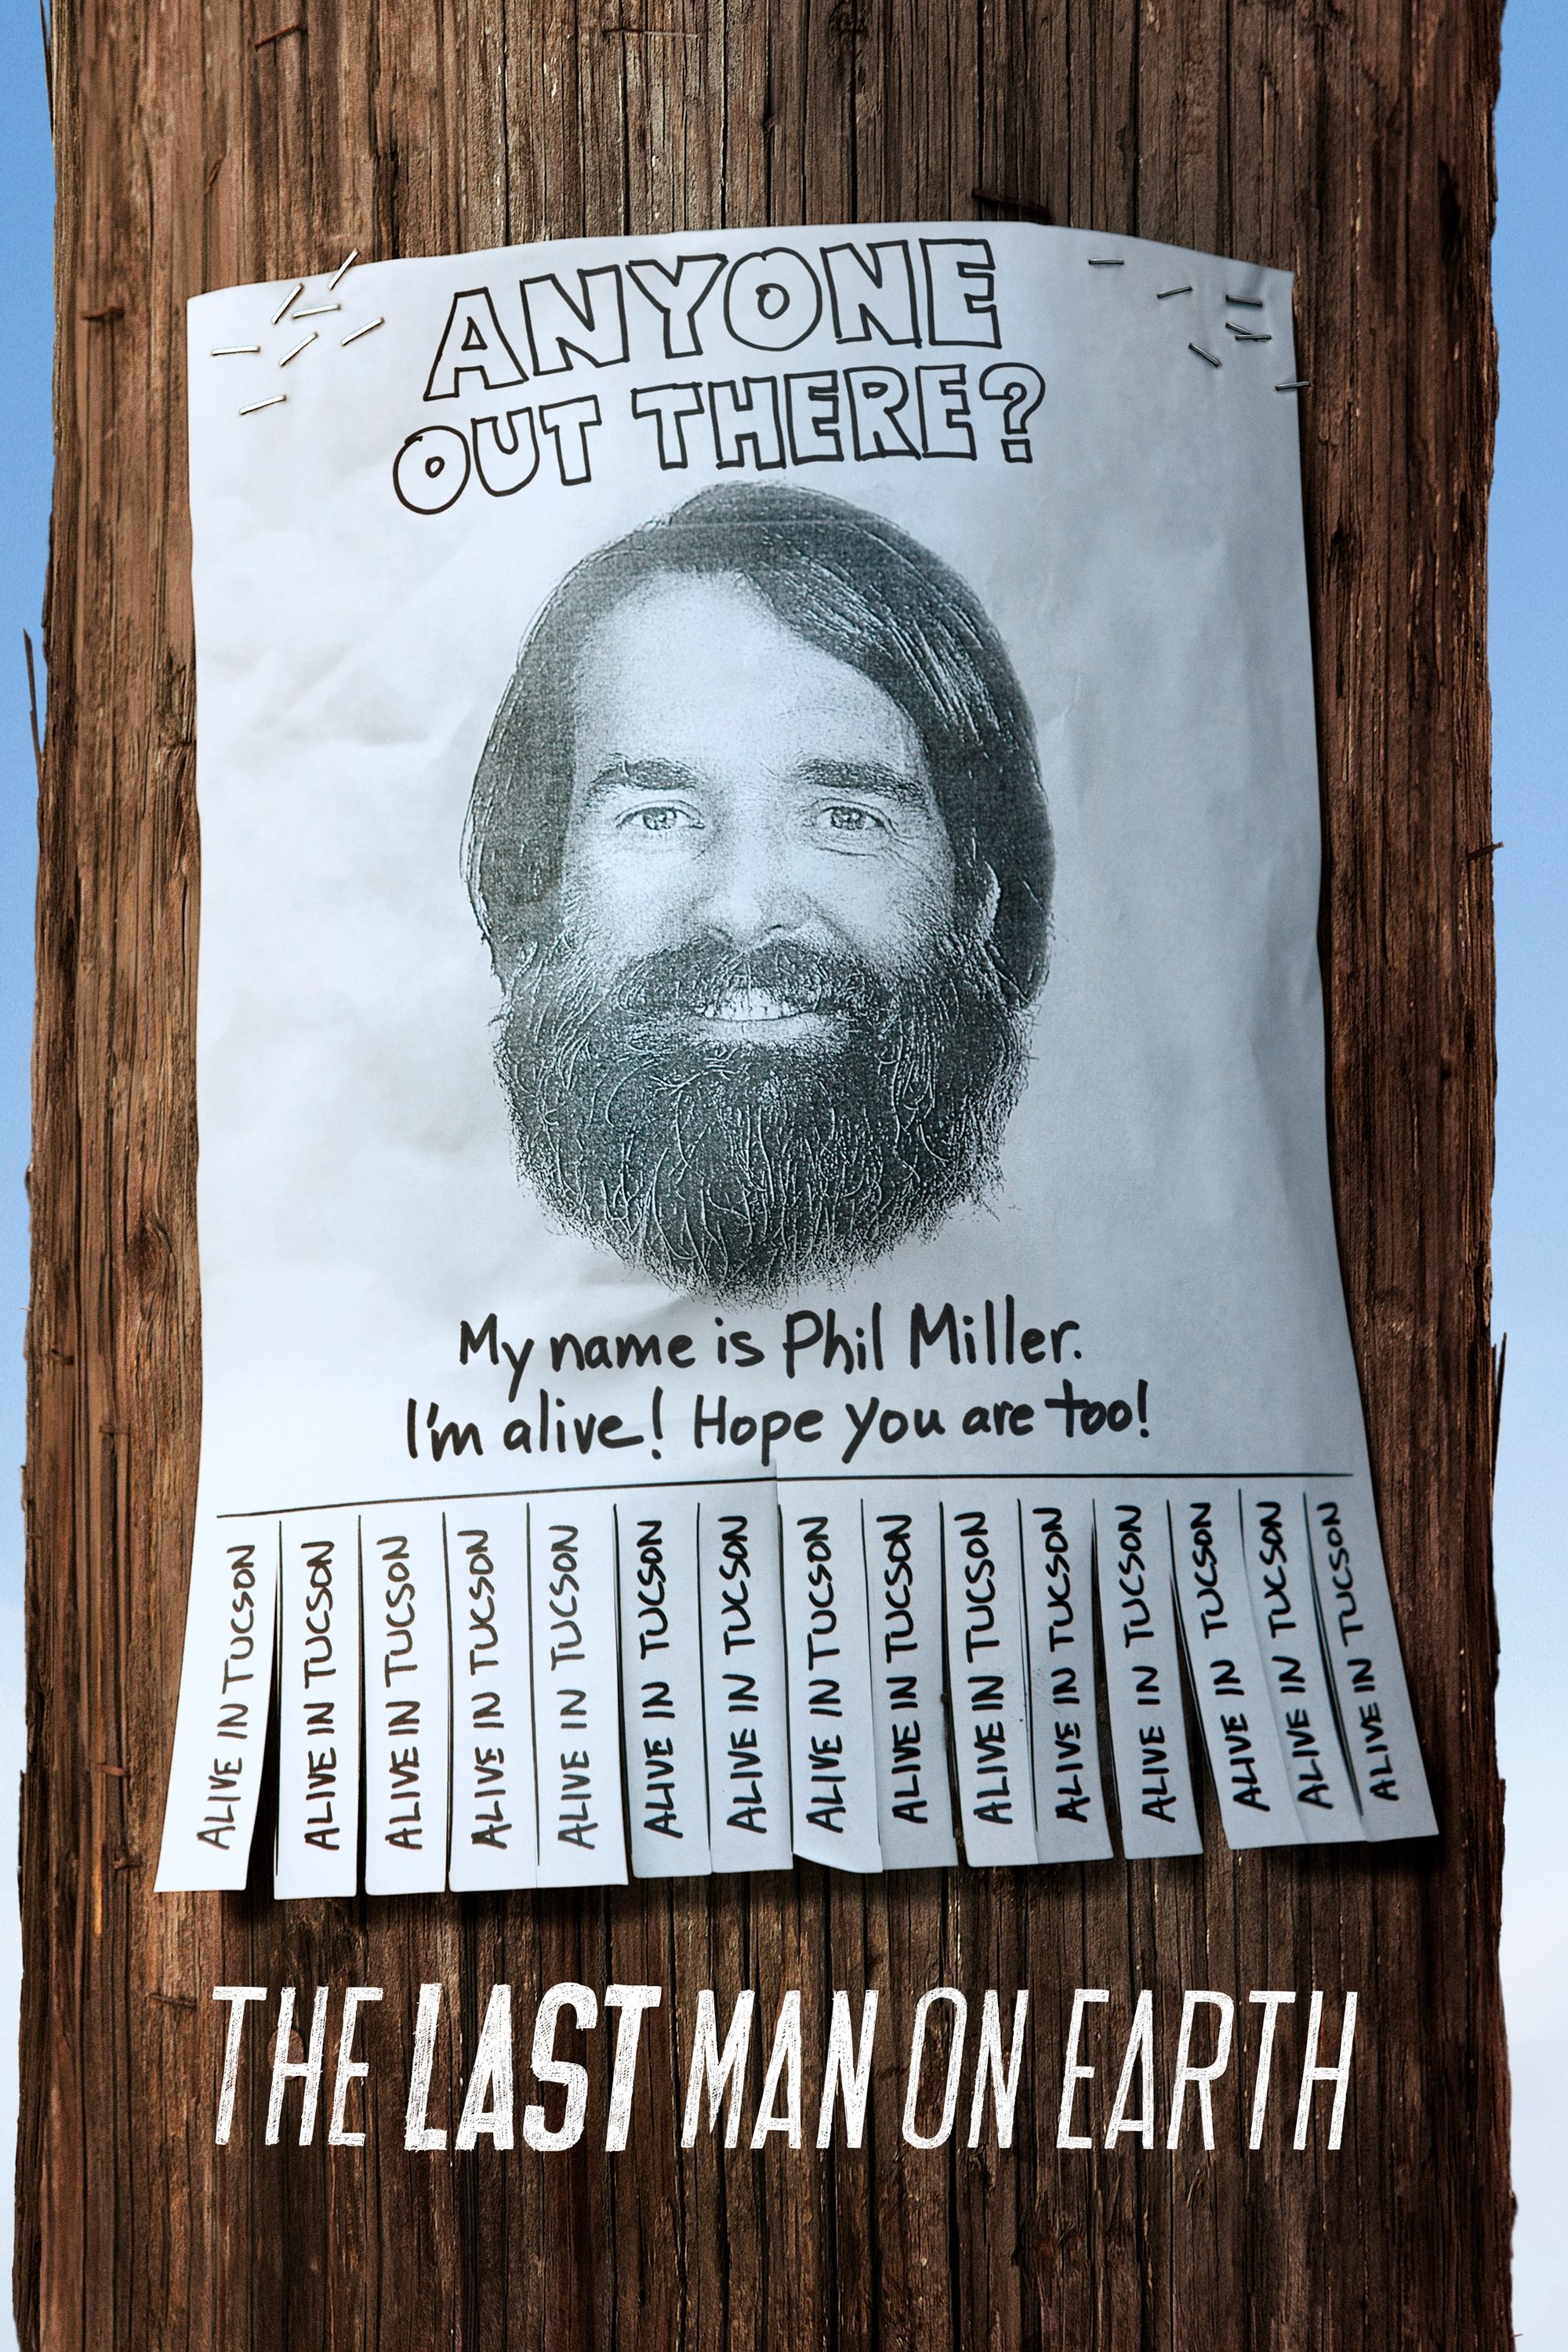 ANYONE
OUT THERE?
My name is Phil Miller.
I'm alive! Hope you are too!
ALIVE IN TUCSON
ALIVE IN TUCSON
ALIVE IN TUCSON
ALIVE IN TUCSON
ALIVE IN TUCSON
ALIVE IN TUCSON
ALIVE IN TUCSON
ALIVE IN TUCSON
ALIVE IN TUCSON
ALIVE IN TUCSON
ALIVE IN TUCSON
ALIVE IN TUCSON
ALIVE IN TUCSON
ALIVE IN TUCSON
ALIVE IN TUCSON
THE LAST MAN ON EARTH